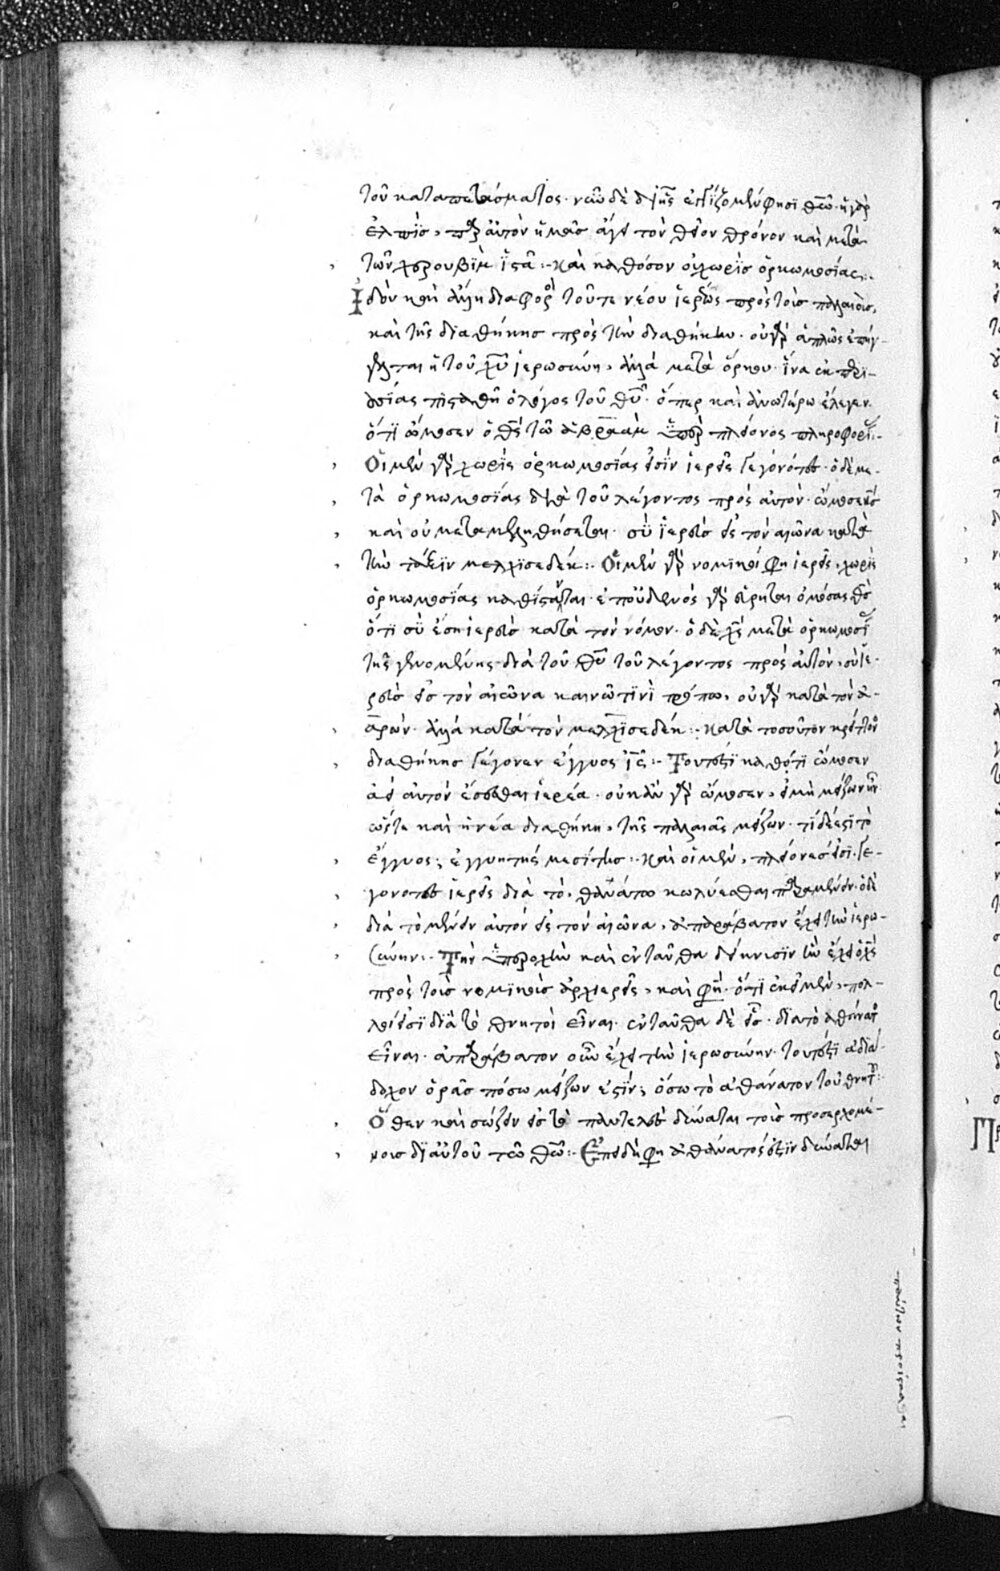 τοῦ καταπετάσματος· νῦν δὲ φησὶν ἐγγίζομεν φησὶ θεῶ· ἡ γὰρ
ἐλπὶς, παρ' αὐτὸν ἡμᾶς ἄγει τὸν θεῖον θρόνον καὶ μετὰ
τῶν χερουβὶμ ἵστησι :- Καὶ καθόσον οὐ χωρὶς ὁρκωμοσίας :-
Ἰδοὺ καὶ ἄλλη διαφορὰ τοῦ τε νέου ἱερέως πρὸς τοὺς παλαιοὺς,
καὶ τῆς διαθήκης πρὸς τὴν διαθήκην· οὐ γὰρ ἁπλῶς ἐπήγ-
γελται ἡ τοῦ χυ ἱερωσύνη, ἀλλὰ μετὰ ὅρκου· ἵνα
ὁ λόγος τοῦ θυ· ὅπερ καὶ ἀνωτέρω ἔλεγεν
ὅτι ὤμοσεν ὁ θς τῶ ἀβραὰμ ὑπὲρ πλείονος πληροφορίας :-
Οἱ μὲν γὰρ χωρὶς ὁρκωμοσίας εἰσὶν ἱερεῖς γεγονότες· ὁ δὲ με-
τὰ ὁρκωμοσίας διὰ τοῦ λέγοντος πρὸς αὐτὸν· ὤμοσεν κς
καὶ οὐ μεταμεληθήσεται· σὺ ἱερεὺς εἰς τὸν αἰῶνα κατὰ
τὴν τάξιν μελχισεδέκ :- Οἱ μὲν γὰρ νομικοί φησιν ἱερεῖς, χωρὶς
ὁρκωμοσίας καθίστανται· ἐπ' οὐδενὸς γὰρ εἴρηται ὁ θς
ὅτι σὺ ἔση ἱερεὺς κατὰ τὸν νόμον· ὁ δὲ χς μετὰ ὁρκωμοσίας
τῆς γενομένης διὰ τοῦ θυ τοῦ λέγοντος πρὸς αὐτὸν, σὺ ἱε-
ρεὺς εἰς τὸν αἰῶνα καινῶ τινὶ τρόπω, οὐ γὰρ κατὰ τὸν ἀ-
αρὼν· ἀλλὰ κατὰ τὸν μελχισεδέκ :- Κατὰ τοσοῦτον κρείττονος
διαθήκης γέγονεν ἔγγυος ις :- Τουτέστι καθότι ὤμοσεν
ἀεὶ αὐτὸν ἔσεσθαι ἱερέα· οὐκ ἂν γὰρ ὤμοσεν, εἰ μὴ μείζων ἦν
ὥστε καὶ ἡ νέα διαθήκη, τῆς παλαιᾶς μείζων· τί δέ ἐστι τὸ
ἔγγυος; ἐγγυητὴς μεσίτης :- Καὶ οἱ μὲν, πλείονές εἰσι γε-
γονότες ἱερεῖς διὰ τὸ, θανάτω κωλύεσθαι παραμένειν· ὁ δὲ
διὰ τὸ μένειν αὐτὸν εἰς τὸν αἰῶνα, ἀπαράβατον ἔχει τὴν ἱερω-
σύνην :- Τὴν ὑπεροχὴν καὶ ἐνταῦθα δείκνυσιν ἣν ἔχει ὁ χς
πρὸς τοὺς νομικοὺς ἀρχιερεῖς, καὶ φησὶν· ὅτι ἐκεῖ μὲν, πολ-
λοί εἰσι διὰ τὸ θνητοὶ εἶναι· ἐνταῦθα δὲ εἷς· διὰ τὸ ἀθάνατος
εἶναι· ἀπαράβατον οὖν ἔχει τὴν ἱερωσύνην· τουτέστι ἀδιά-
δοχον ὁρᾶς πόσω μείζων ἐστὶν; ὅσω τὸ ἀθάνατον τοῦ θνητοῦ :-
Ὅθεν καὶ σώζειν εἰς τὸ παντελὲς δύναται τοὺς προσερχομέ-
νους δι' αὐτοῦ τῶ θεῶ :- Ἐπειδή φησιν ἀθάνατός ἐστιν δύναται